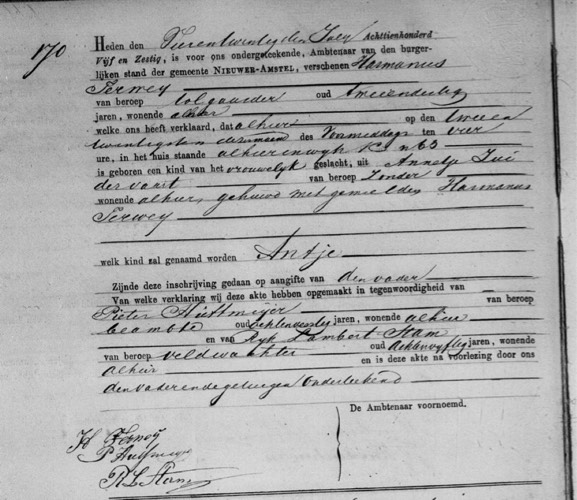 170
Heden den Vierentwintigsten Juni Achttienhonderd
Vijf en Zestig, is voor ons ondergeteekende, Ambtenaar van den burger-
lijken stand der gemeente NIEUWER-AMSTEL, verschenen Harmanus
Terwey
van beroep tolgaarder oud tweeendertig
jaren, wonende alhier
welke ons heeft verklaard, dat alhier op den tweeen
twintigsten dezer des Voormiddags ten vier
ure, in het huis staande alhier in wijk K n 63
is geboren een kind van het vrouwelyk geslacht, uit Annetje
der vorst van beroep Zonder
wonende alhier, gehuwd met gemelden Harmanus
Terwey
welk kind zal genaamd worden Antje
Zijnde deze inschrijving gedaan op aangifte van den vader
Van welke verklaring wij deze akte hebben opgemaakt in tegenwoordigheid van
Pieter van beroep
beambte oud jaren, wonende alhier
en van Ryk Lambert Stam
van beroep veldwachter oud achtenvyftig jaren, wonende
alhier en is deze akte na voorlezing door ons
den vader en de getuigen Onderteekend
De Ambtenaar voornoemd.
H Terweij
R L Stam